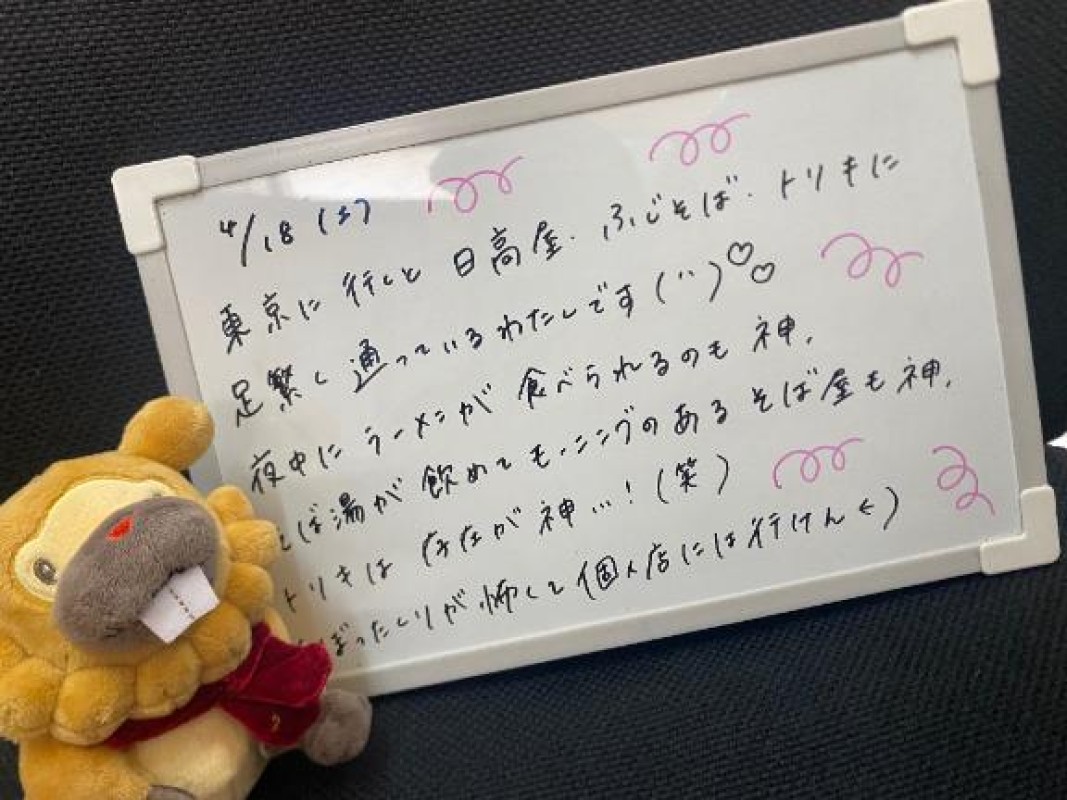 4/18 (土)
東京に行くと日高屋、ふじそば、トリキに
足繁く通っているわたしです(¨)♡♡
夜中にラーメンが食べられるのも神、
そば湯が飲めてモーニングのあるそば屋も神、
トリキは存在が神…!(笑)
ぼったくりが怖くて個人店には行けん←)